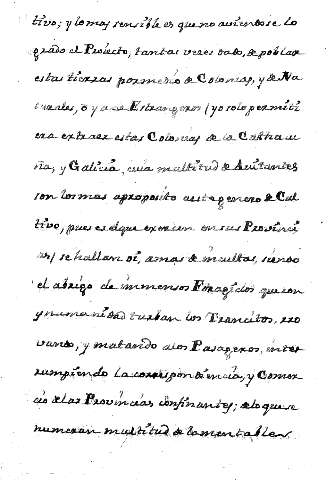 tivo; y lo mas sensible es que no aviendose lo
grado el Proiecto, tantas veces dado, de poblar
estas tierras por medio de Colonias, y de Na
turales, o ya de Estrangeros (yo solo permiti
era extraer estas Colonias de la Cantha u
ña, y Galicia, cuia multitud de Avitantes
son los mas aproposito a este genero de Cul
tivo, pues es el que exercen en sus Provinci
as) se hallan oi, a mas de incultos, siendo
el abrigo de immensos Foragidos que con
ynumanidad turban los Trancitos, rro
vando, y matando a los Pasageros, inter
rumpiendo la correspondiencia, y Comer
cio de las Provincias confinantes; de lo que se
numeran multitud de lamentables